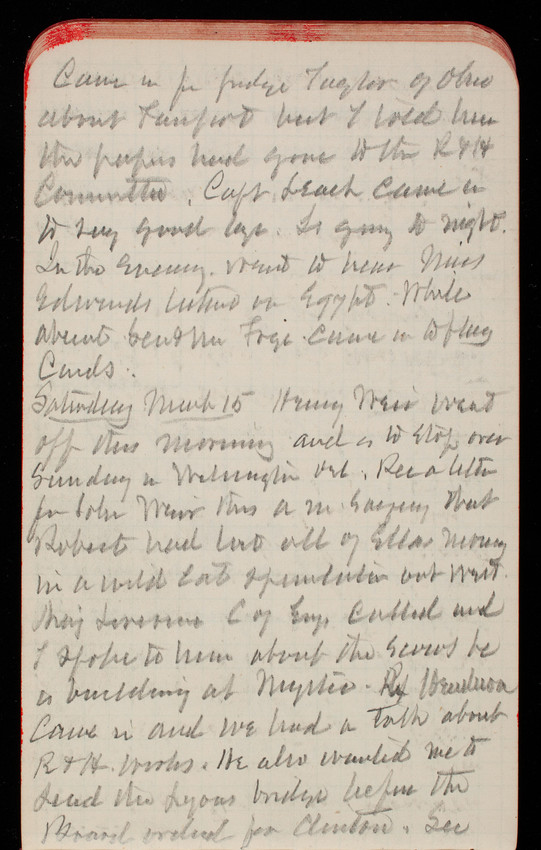 Came in for Judge Taylor of Ohio
about Fairport but I told him
the papers had gone to the R & H
Committee. Capt Leach came in
to say good bye. Is going to night.
In the evening went to hear Miss
Edwards lecture on Egypt. While
absent Genl & Mrs came in to play
Cards.
Saturday March 15 Henry Weir went
off this morning and is to stop over
Sunday in Wilmington Del. Rec a letter
from John Weir this a m saying that
Robert had lost all of Ellas money
in a wild cat speculation out West.
Maj Livermore C of Eng. called and
I spoke to him about the Scows he
is building at Mystic. Rep Henderson
came in and we had a talk about
R & H. works. He also wanted me to
send the Lyons bridge before the
Board ordered for Clinton. See